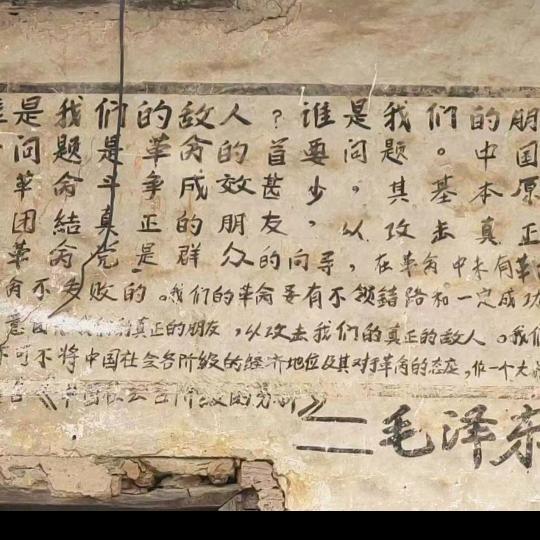 谁是我们的敌人?谁是我们的朋
问题是革命的首要问题。中国
革命斗争成效甚少,其基本原
团结真正的朋友,以攻击真正
革命党是群众的向导,在革命中未有革
命不失败的。我们的革命要有不领错路和一定成功
意团结我们的真正的朋友,以攻击我们的真正的敌人。我们
不可不将中国社会各阶级的经济地位及其对于革命的态度,作一个大
《中国社会各阶级的分析》
——毛泽东